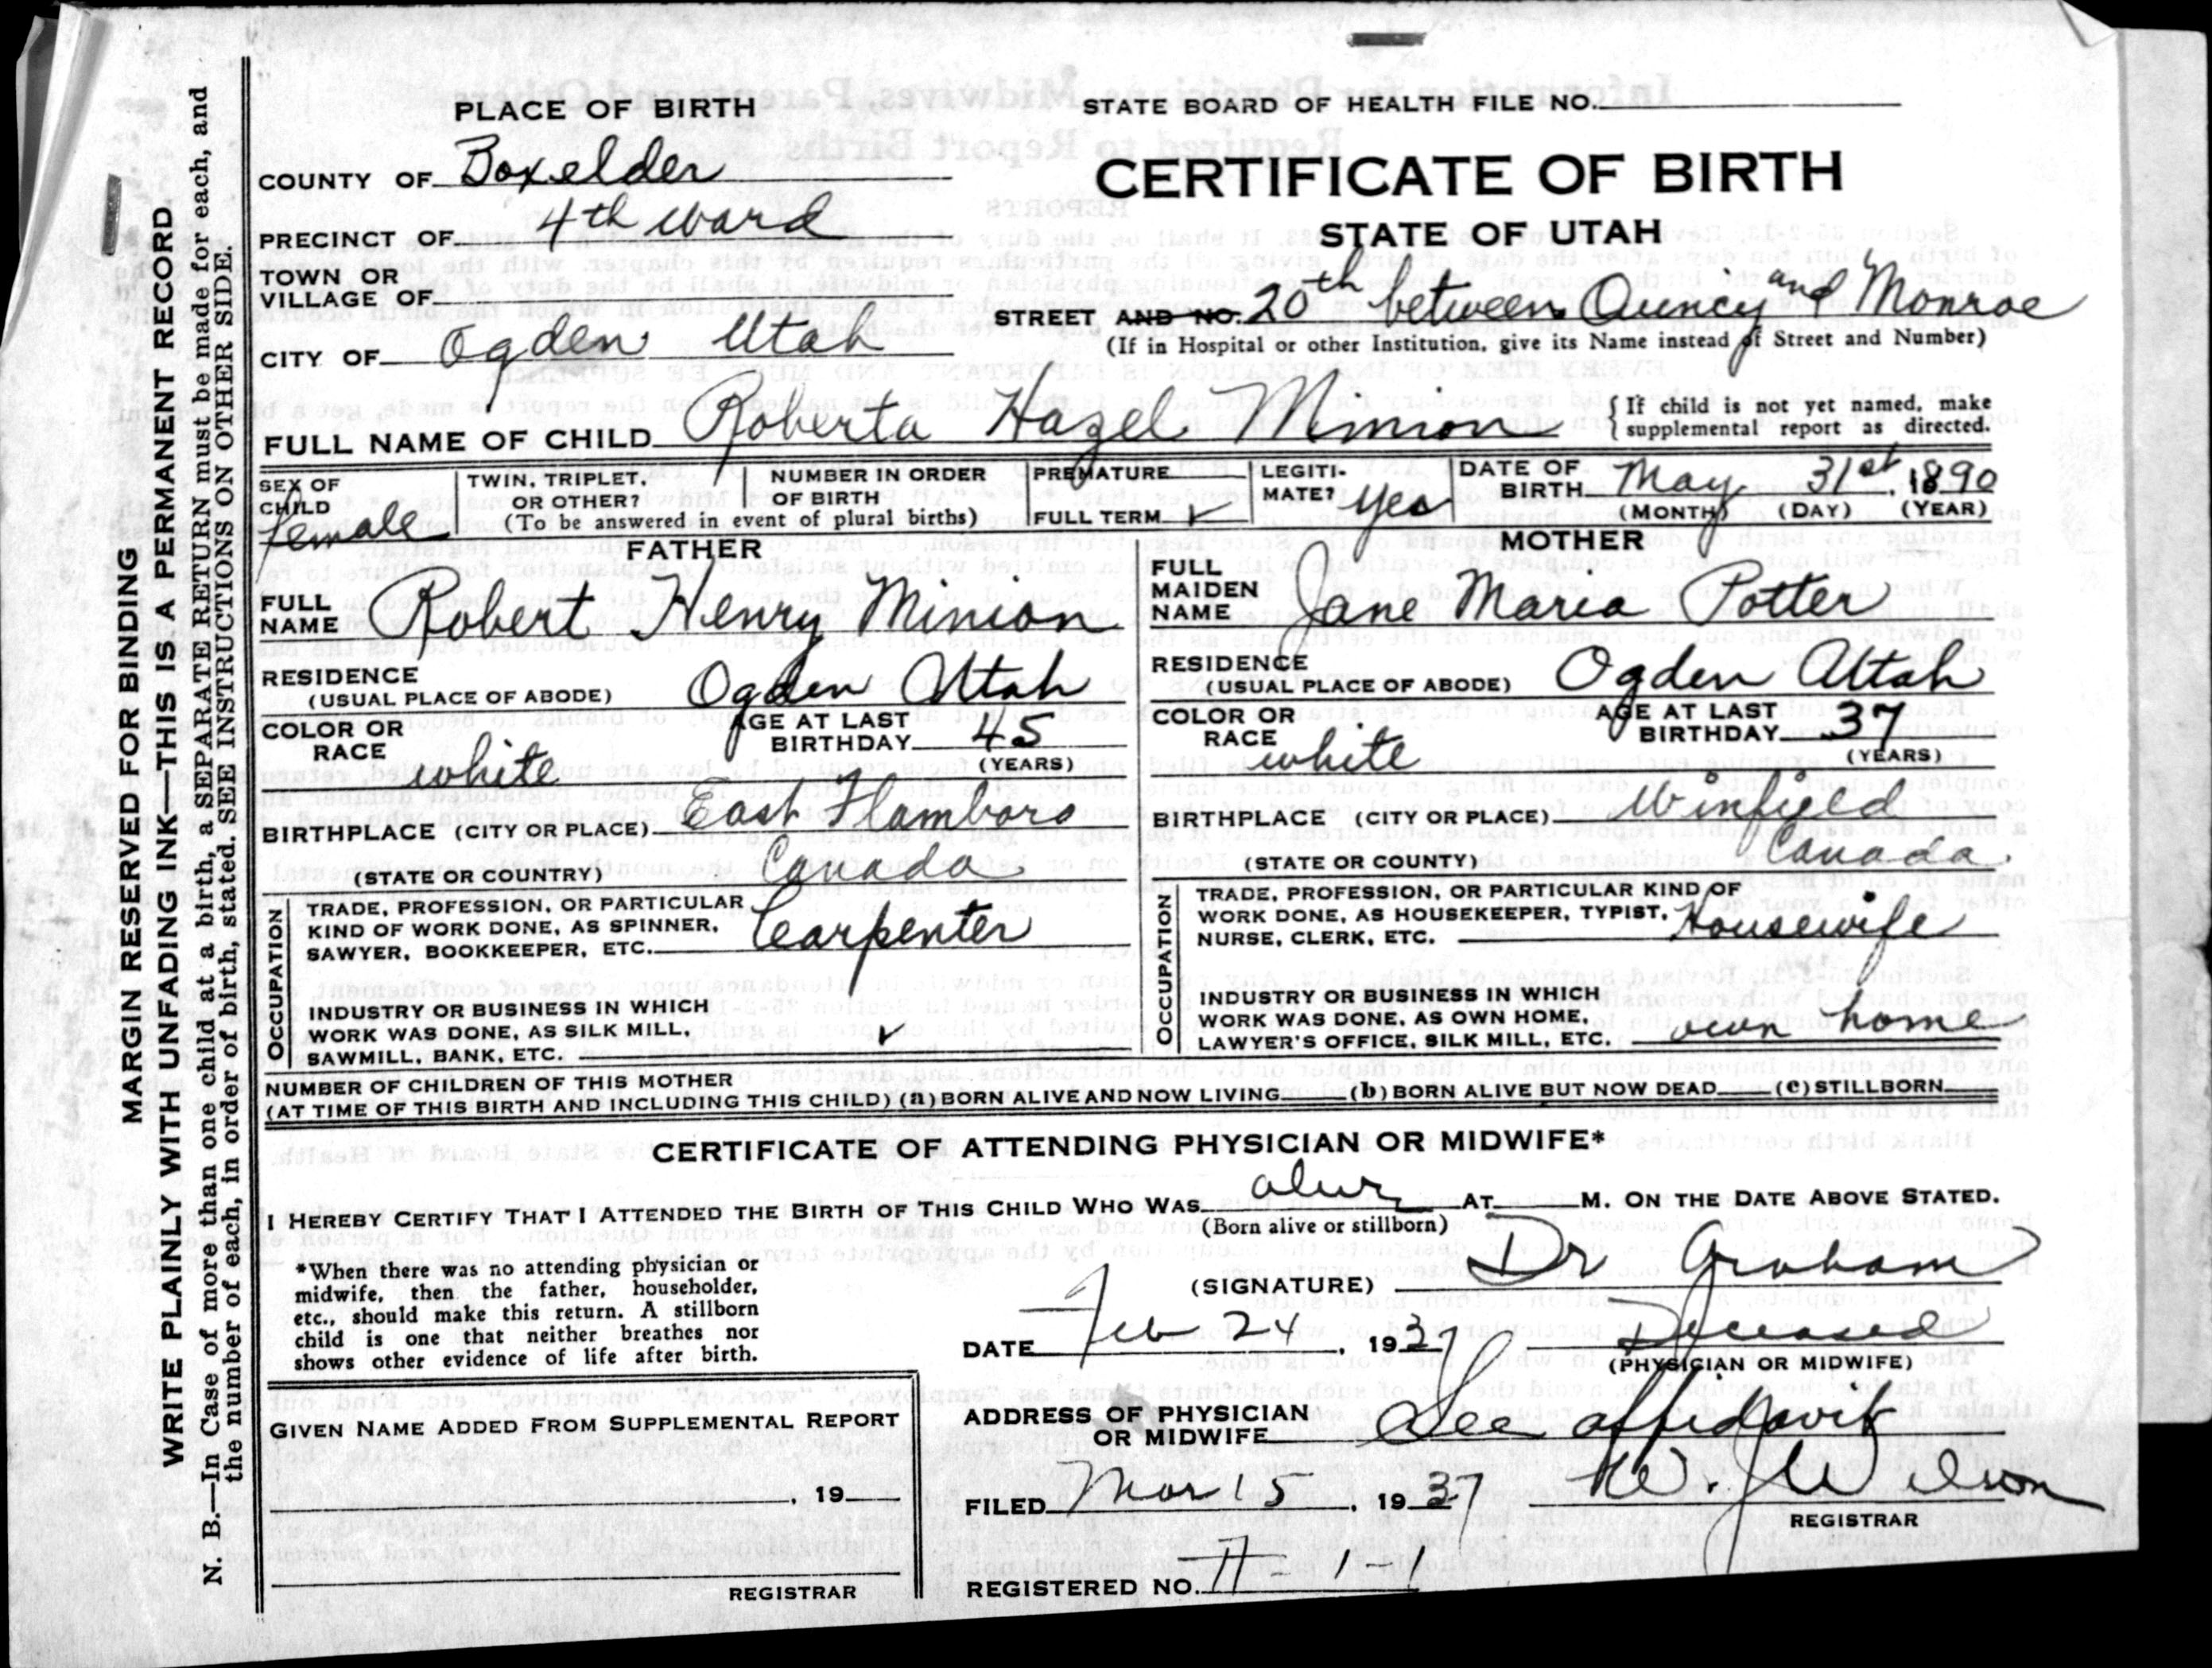 MARGIN RESERVED FOR BINDING
WRITE PLAINLY WITH UNFADING INK—THIS IS A PERMANENT RECORD
N. B.—In Case of more than one child at a birth, a SEPARATE RETURN must be made for each, and
the number of each, in order of birth, stated. SEE INSTRUCTIONS ON OTHER SIDE.
PLACE OF BIRTH
STATE BOARD OF HEALTH FILE NO.
COUNTY OF Boxelder
CERTIFICATE OF BIRTH
PRECINCT OF 4th ward
STATE OF UTAH
TOWN OR
VILLAGE OF
STREET AND NO. 20th between Quincy and Monroe
(If in Hospital or other Institution, give its Name instead of Street and Number)
CITY OF Ogden Utah
FULL NAME OF CHILD Roberta Hazel Minion
{ If child is not yet named, make
supplemental report as directed.
SEX OF
CHILD
female
TWIN, TRIPLET,
OR OTHER?
NUMBER IN ORDER
OF BIRTH
(To be answered in event of plural births)
PREMATURE
FULL TERM ✓
LEGITI-
MATE? yes
DATE OF
BIRTH May 31st, 1890
(MONTH) (DAY) (YEAR)
FATHER
FULL
NAME Robert Henry Minion
RESIDENCE
(USUAL PLACE OF ABODE) Ogden Utah
COLOR OR
RACE white
AGE AT LAST
BIRTHDAY 45
(YEARS)
BIRTHPLACE (CITY OR PLACE) East Flamboro
(STATE OR COUNTRY) Canada
OCCUPATION
TRADE, PROFESSION, OR PARTICULAR
KIND OF WORK DONE, AS SPINNER,
SAWYER, BOOKKEEPER, ETC. Carpenter
INDUSTRY OR BUSINESS IN WHICH
WORK WAS DONE, AS SILK MILL,
SAWMILL, BANK, ETC. ✓
MOTHER
FULL
MAIDEN
NAME Jane Maria Potter
RESIDENCE
(USUAL PLACE OF ABODE) Ogden Utah
COLOR OR
RACE white
AGE AT LAST
BIRTHDAY 37
(YEARS)
BIRTHPLACE (CITY OR PLACE) Winfield
(STATE OR COUNTY) Canada
OCCUPATION
TRADE, PROFESSION, OR PARTICULAR KIND OF
WORK DONE, AS HOUSEKEEPER, TYPIST,
NURSE, CLERK, ETC. Housewife
INDUSTRY OR BUSINESS IN WHICH
WORK WAS DONE, AS OWN HOME,
LAWYER'S OFFICE, SILK MILL, ETC. own home
NUMBER OF CHILDREN OF THIS MOTHER
(AT TIME OF THIS BIRTH AND INCLUDING THIS CHILD) (a) BORN ALIVE AND NOW LIVING (b) BORN ALIVE BUT NOW DEAD (c) STILLBORN
CERTIFICATE OF ATTENDING PHYSICIAN OR MIDWIFE*
I HEREBY CERTIFY THAT I ATTENDED THE BIRTH OF THIS CHILD WHO WAS alive AT M. ON THE DATE ABOVE STATED.
(Born alive or stillborn)
*When there was no attending physician or
midwife, then the father, householder,
etc., should make this return. A stillborn
child is one that neither breathes nor
shows other evidence of life after birth.
(SIGNATURE) Dr Graham
DATE Feb 24, 1937 Deceased
(PHYSICIAN OR MIDWIFE)
GIVEN NAME ADDED FROM SUPPLEMENTAL REPORT
, 19
REGISTRAR
ADDRESS OF PHYSICIAN
OR MIDWIFE See affidavit
FILED Mar 15, 1937 W. J. Wilson
REGISTRAR
REGISTERED NO. 1-1